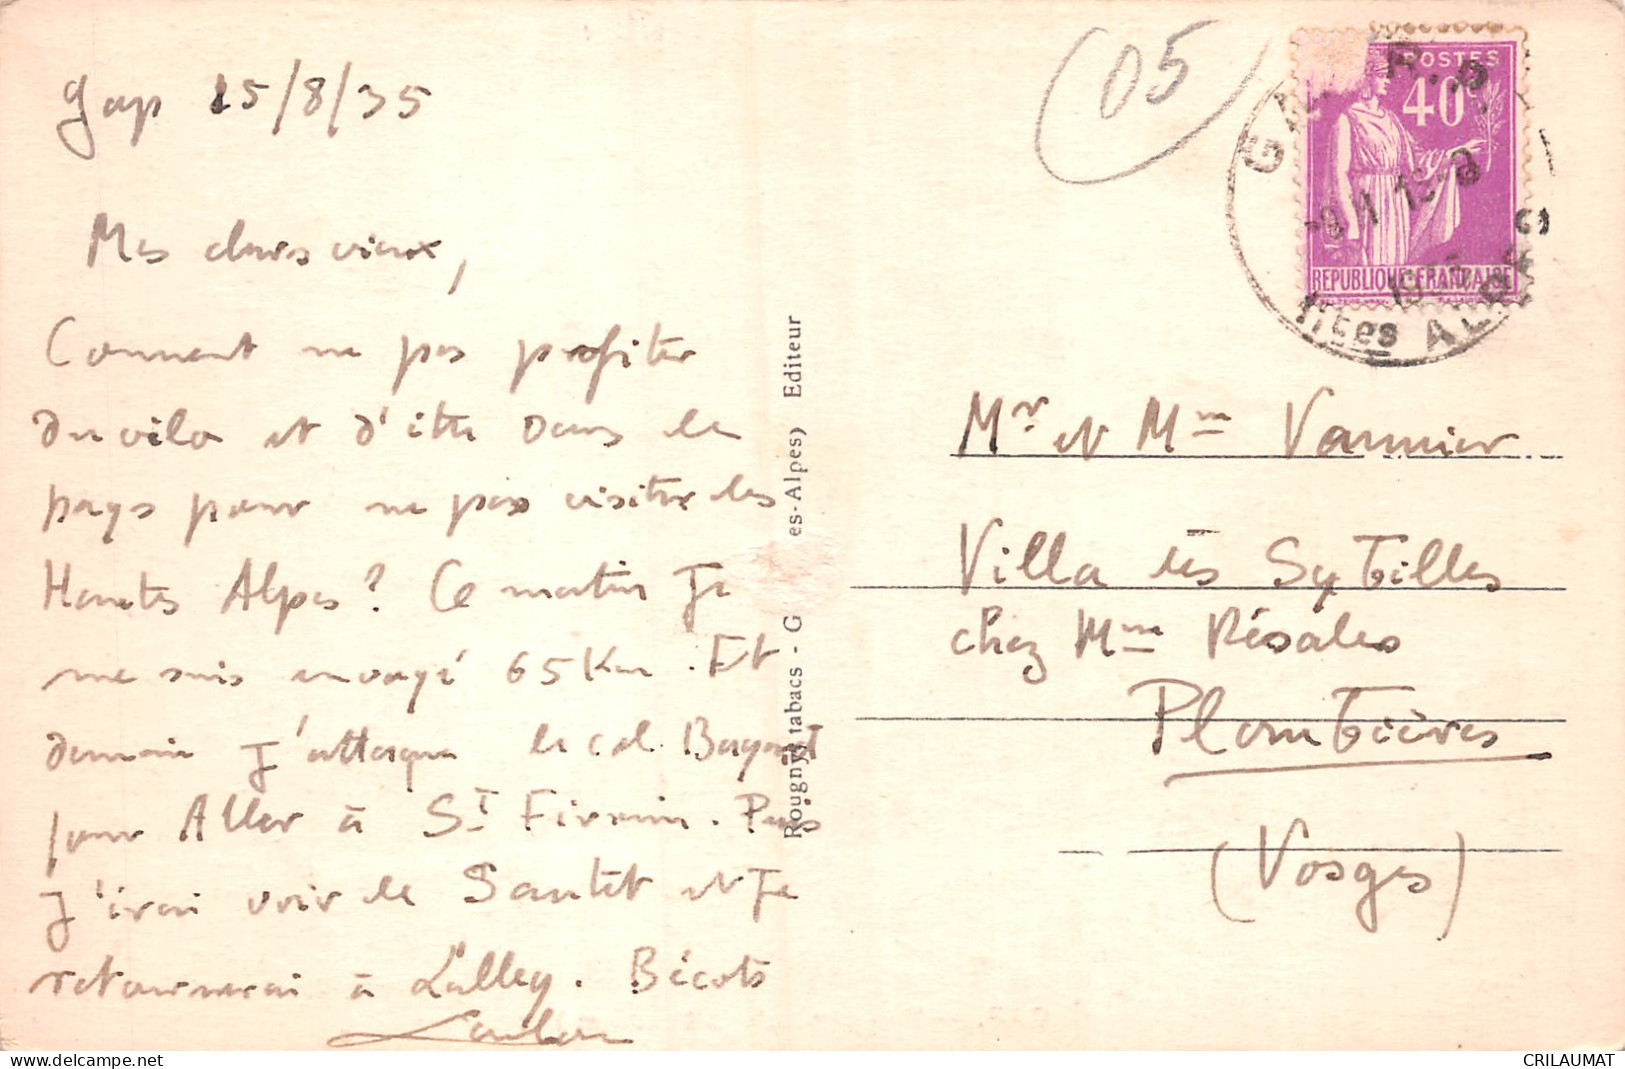 Gap 15/8/35
Mes chers vieux,
Comment ne pas profiter
du vélo et d'être dans le
pays pour ne pas visiter les
Hautes Alpes? Ce matin je
me suis envoyé 65 Km. Et
demain j'attaque le col Bayard
pour Aller à St Firmin. Puis
j'irai voir le Sautet et je
retournerai à Lalley. Bécots
Loulou
Rougny, tabacs - G es-Alpes) Editeur
(05)
POSTES
40c
REPUBLIQUE FRANCAISE
GAP R.P.
1935
Htes ALPES
Mr et Mme Vannier
Villa les Sybilles
chez Mme Résales
Plombières
(Vosges)
CRILAUMAT